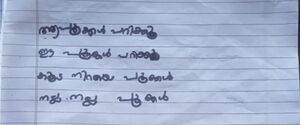 ആ പൂക്കൾ പറിക്കൂ
ഈ പൂക്കൾ പറിക്കൂ
കൂട നിറയെ പൂക്കൾ
നല്ല നല്ല പൂക്കൾ